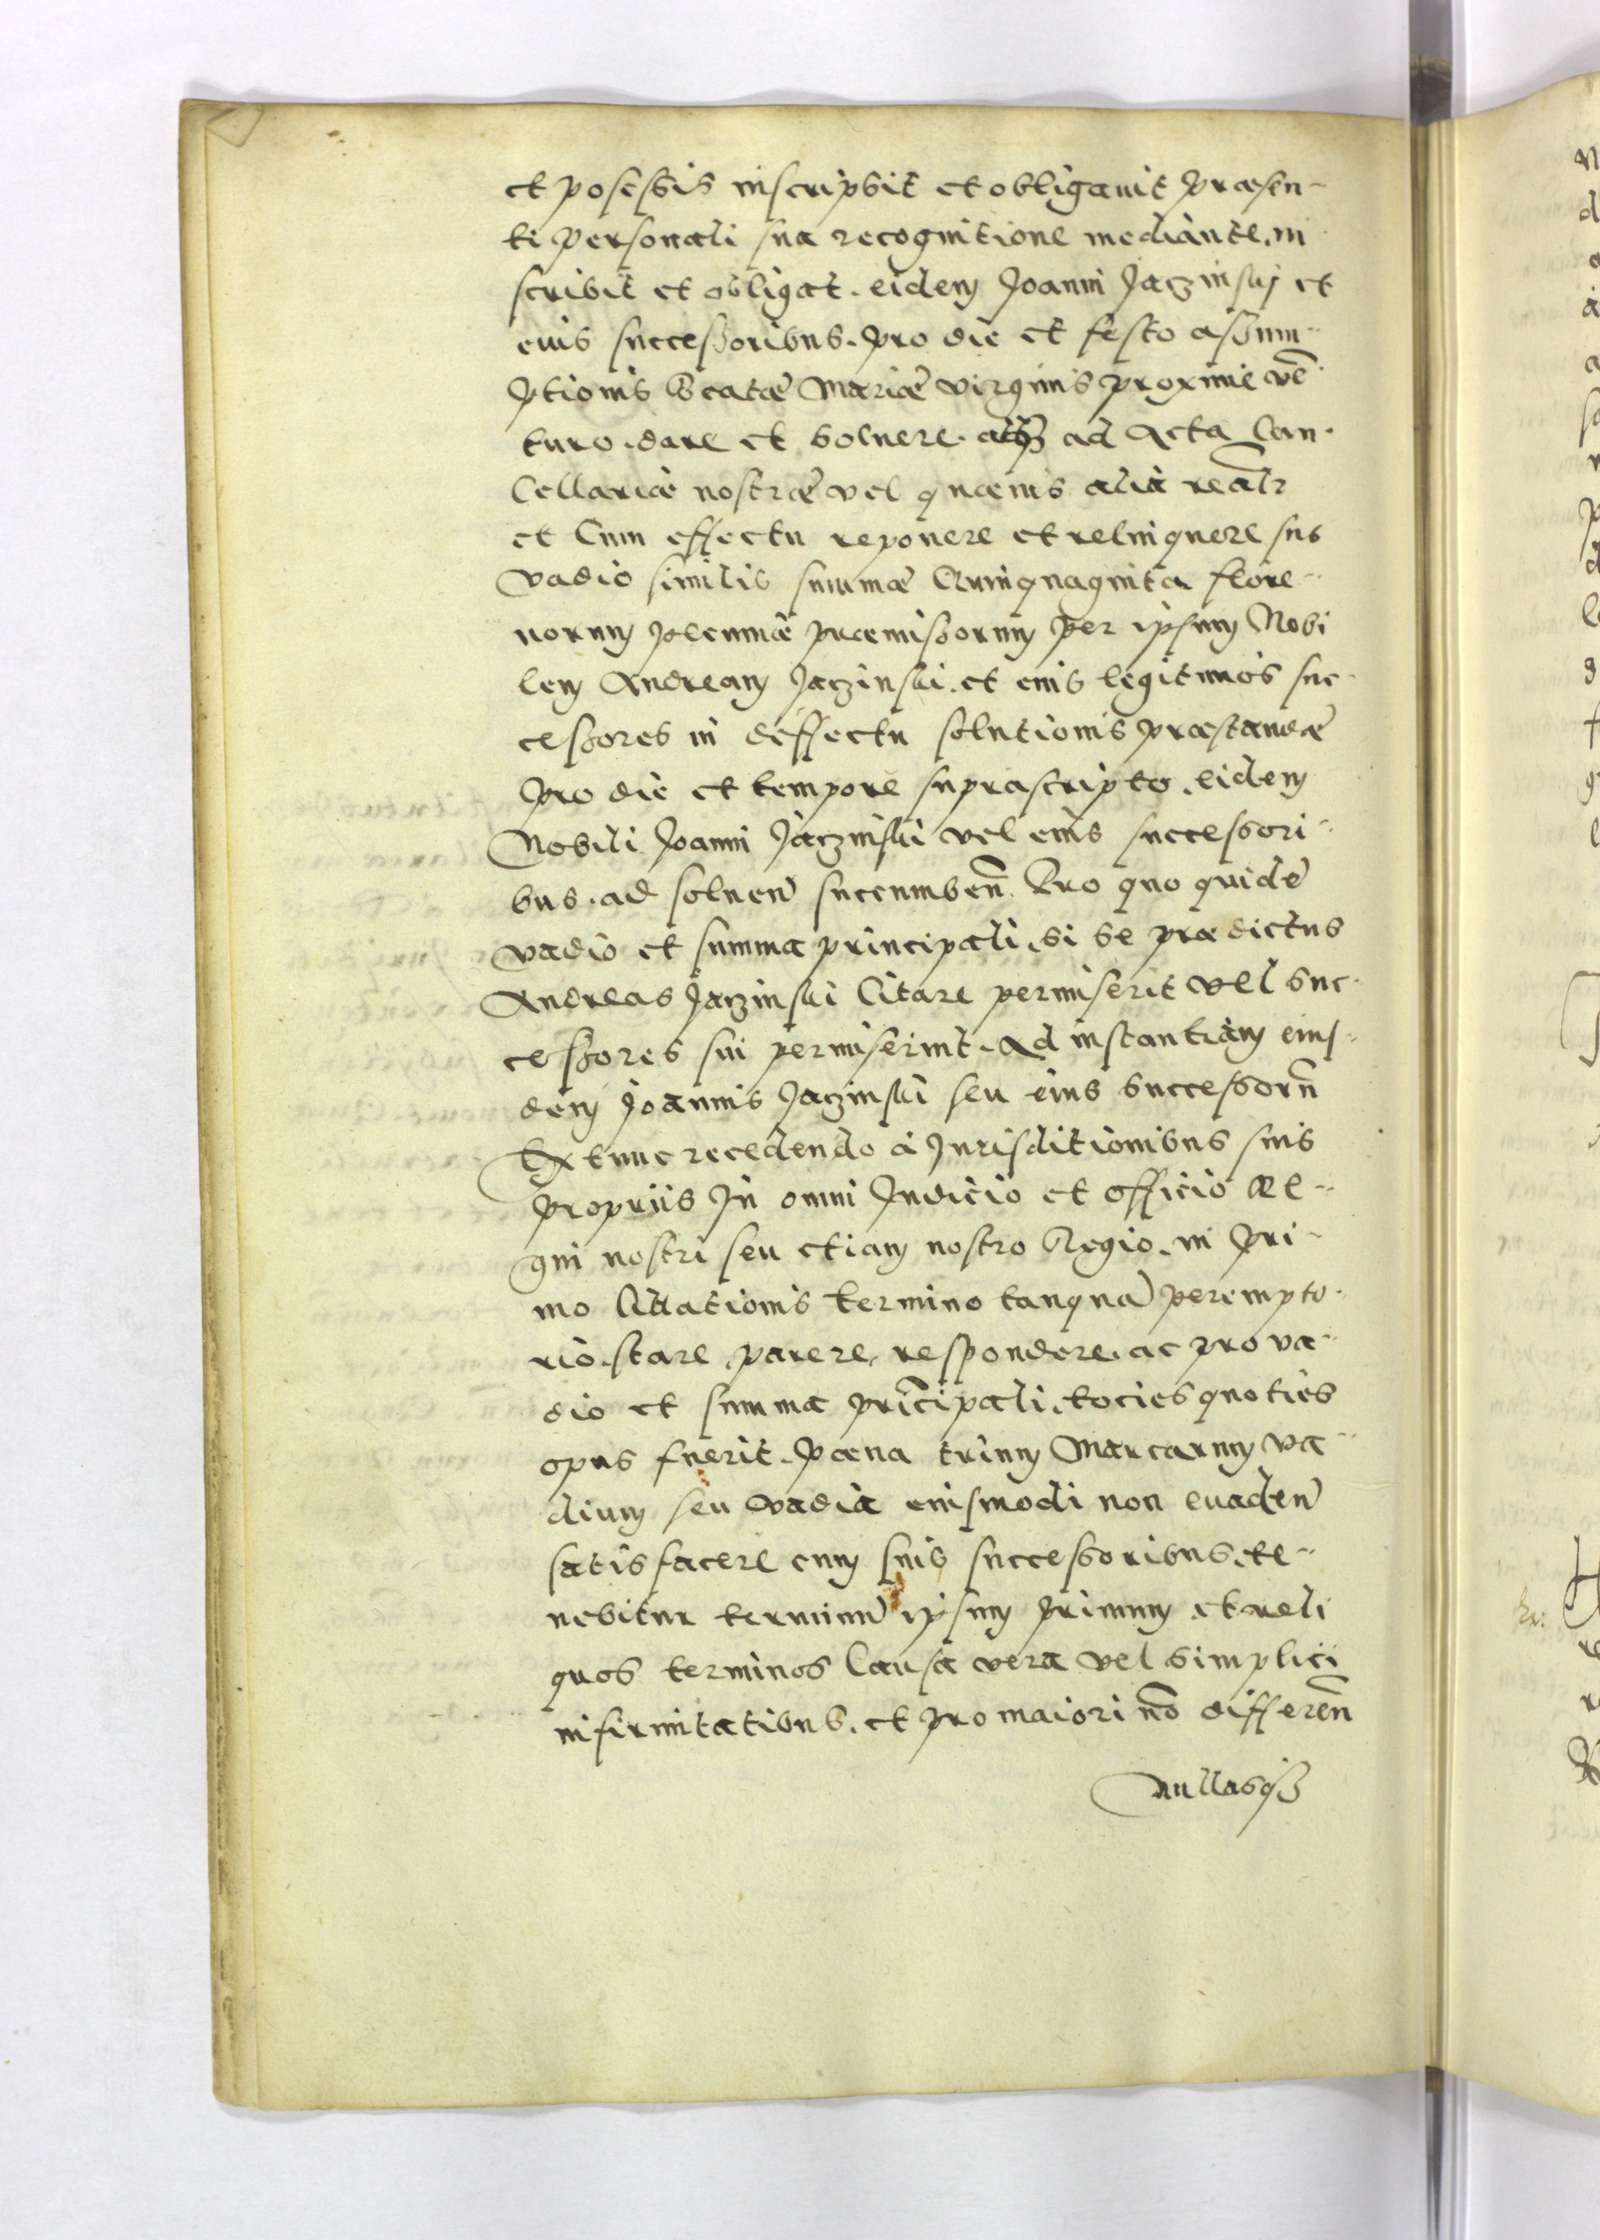 et posessis inscripsit et obligauit præsen-
ti personali sua recognitione mediante, in
scribit et obligat. eidem Joanni Jaczinskj et
euis successoribus. pro die et festo assum-
ptionis Beatæ Mariæ virginis proxime vē
turo. dare et soluere. atqз ad Acta Can-
cellariæ nostræ vel quæuis alia realr
et Cum effectu reponere et relinquere sub
vadio similis summæ Quinquaginta flore-
norum præmissorum per ipsum Nobi
lem Andream Jaczinski. et eius legitimos suc-
cessores in deffectu solutionis præstandæ
pro die et tempore suprascripto. eidem
Nobili Joanni Jaczinski vel eius successori-
bus. ad soluen̄ succumben̄ Pro quo quidē
vadio et summa principali, si se prædictus
Andreas Jaczinski Citare permiserit vel suc-
cessores sui permiserint. Ad instantiam eius-
dem Joannis Jaczinski seu eius successorū
Ex tunc recedendo a Jurisditionibus suis
proprijs In omni Judicio et officio Re-
gni nostri seu etiam nostro Regio. in pri-
mo Citationis termino tanquā perempto-
rio. stare, parere, respondere. ac pro va-
dio et summa prīcipali, tocies quoties
opus fuerit. pæna trium Marcarum va-
dium seu vadia eiusmodi non euaden̄
satisfacere cum suis successoribus. te-
nebitur terminū ipsum primum et reli
quos terminos Causa vera vel simplici
infirmitatibus. et pro maiori nō differen̄
nullasqз